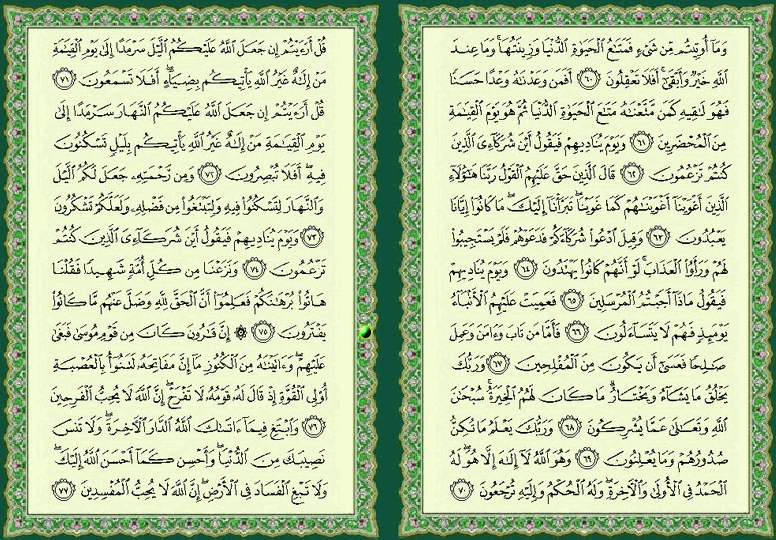 وَمَآ أُوتِيتُم مِّن شَىْءٍ فَمَتَـٰعُ ٱلْحَيَوٰةِ ٱلدُّنْيَا وَزِينَتُهَا ۚ وَمَا عِندَ
ٱللَّهِ خَيْرٌ وَأَبْقَىٰٓ ۚ أَفَلَا تَعْقِلُونَ ٦٠ أَفَمَن وَعَدْنَـٰهُ وَعْدًا حَسَنًا
فَهُوَ لَـٰقِيهِ كَمَن مَّتَّعْنَـٰهُ مَتَـٰعَ ٱلْحَيَوٰةِ ٱلدُّنْيَا ثُمَّ هُوَ يَوْمَ ٱلْقِيَـٰمَةِ
مِنَ ٱلْمُحْضَرِينَ ٦١ وَيَوْمَ يُنَادِيهِمْ فَيَقُولُ أَيْنَ شُرَكَآءِىَ ٱلَّذِينَ
كُنتُمْ تَزْعُمُونَ ٦٢ قَالَ ٱلَّذِينَ حَقَّ عَلَيْهِمُ ٱلْقَوْلُ رَبَّنَا هَـٰٓؤُلَآءِ
ٱلَّذِينَ أَغْوَيْنَآ أَغْوَيْنَـٰهُمْ كَمَا غَوَيْنَا ۖ تَبَرَّأْنَآ إِلَيْكَ ۖ مَا كَانُوٓا۟ إِيَّانَا
يَعْبُدُونَ ٦٣ وَقِيلَ ٱدْعُوا۟ شُرَكَآءَكُمْ فَدَعَوْهُمْ فَلَمْ يَسْتَجِيبُوا۟
لَهُمْ وَرَأَوُا۟ ٱلْعَذَابَ ۚ لَوْ أَنَّهُمْ كَانُوا۟ يَهْتَدُونَ ٦٤ وَيَوْمَ يُنَادِيهِمْ
فَيَقُولُ مَاذَآ أَجَبْتُمُ ٱلْمُرْسَلِينَ ٦٥ فَعَمِيَتْ عَلَيْهِمُ ٱلْأَنۢبَآءُ
يَوْمَئِذٍ فَهُمْ لَا يَتَسَآءَلُونَ ٦٦ فَأَمَّا مَن تَابَ وَءَامَنَ وَعَمِلَ
صَـٰلِحًا فَعَسَىٰٓ أَن يَكُونَ مِنَ ٱلْمُفْلِحِينَ ٦٧ وَرَبُّكَ
يَخْلُقُ مَا يَشَآءُ وَيَخْتَارُ ۗ مَا كَانَ لَهُمُ ٱلْخِيَرَةُ ۚ سُبْحَـٰنَ
ٱللَّهِ وَتَعَـٰلَىٰ عَمَّا يُشْرِكُونَ ٦٨ وَرَبُّكَ يَعْلَمُ مَا تُكِنُّ
صُدُورُهُمْ وَمَا يُعْلِنُونَ ٦٩ وَهُوَ ٱللَّهُ لَآ إِلَـٰهَ إِلَّا هُوَ ۖ لَهُ
ٱلْحَمْدُ فِى ٱلْأُولَىٰ وَٱلْـَٔاخِرَةِ ۖ وَلَهُ ٱلْحُكْمُ وَإِلَيْهِ تُرْجَعُونَ ٧٠
قُلْ أَرَءَيْتُمْ إِن جَعَلَ ٱللَّهُ عَلَيْكُمُ ٱلَّيْلَ سَرْمَدًا إِلَىٰ يَوْمِ ٱلْقِيَـٰمَةِ
مَنْ إِلَـٰهٌ غَيْرُ ٱللَّهِ يَأْتِيكُم بِضِيَآءٍ ۖ أَفَلَا تَسْمَعُونَ ٧١
قُلْ أَرَءَيْتُمْ إِن جَعَلَ ٱللَّهُ عَلَيْكُمُ ٱلنَّهَارَ سَرْمَدًا إِلَىٰ
يَوْمِ ٱلْقِيَـٰمَةِ مَنْ إِلَـٰهٌ غَيْرُ ٱللَّهِ يَأْتِيكُم بِلَيْلٍ تَسْكُنُونَ
فِيهِ ۖ أَفَلَا تُبْصِرُونَ ٧٢ وَمِن رَّحْمَتِهِۦ جَعَلَ لَكُمُ ٱلَّيْلَ
وَٱلنَّهَارَ لِتَسْكُنُوا۟ فِيهِ وَلِتَبْتَغُوا۟ مِن فَضْلِهِۦ وَلَعَلَّكُمْ تَشْكُرُونَ
٧٣ وَيَوْمَ يُنَادِيهِمْ فَيَقُولُ أَيْنَ شُرَكَآءِىَ ٱلَّذِينَ كُنتُمْ
تَزْعُمُونَ ٧٤ وَنَزَعْنَا مِن كُلِّ أُمَّةٍ شَهِيدًا فَقُلْنَا
هَاتُوا۟ بُرْهَـٰنَكُمْ فَعَلِمُوٓا۟ أَنَّ ٱلْحَقَّ لِلَّهِ وَضَلَّ عَنْهُم مَّا كَانُوا۟
يَفْتَرُونَ ٧٥ ۞ إِنَّ قَـٰرُونَ كَانَ مِن قَوْمِ مُوسَىٰ فَبَغَىٰ
عَلَيْهِمْ ۖ وَءَاتَيْنَـٰهُ مِنَ ٱلْكُنُوزِ مَآ إِنَّ مَفَاتِحَهُۥ لَتَنُوٓأُ بِٱلْعُصْبَةِ
أُو۟لِى ٱلْقُوَّةِ إِذْ قَالَ لَهُۥ قَوْمُهُۥ لَا تَفْرَحْ ۖ إِنَّ ٱللَّهَ لَا يُحِبُّ ٱلْفَرِحِينَ
٧٦ وَٱبْتَغِ فِيمَآ ءَاتَىٰكَ ٱللَّهُ ٱلدَّارَ ٱلْـَٔاخِرَةَ ۖ وَلَا تَنسَ
نَصِيبَكَ مِنَ ٱلدُّنْيَا ۖ وَأَحْسِن كَمَآ أَحْسَنَ ٱللَّهُ إِلَيْكَ ۖ
وَلَا تَبْغِ ٱلْفَسَادَ فِى ٱلْأَرْضِ ۖ إِنَّ ٱللَّهَ لَا يُحِبُّ ٱلْمُفْسِدِينَ ٧٧